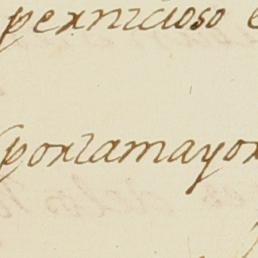 pernicioso e
porlamayor